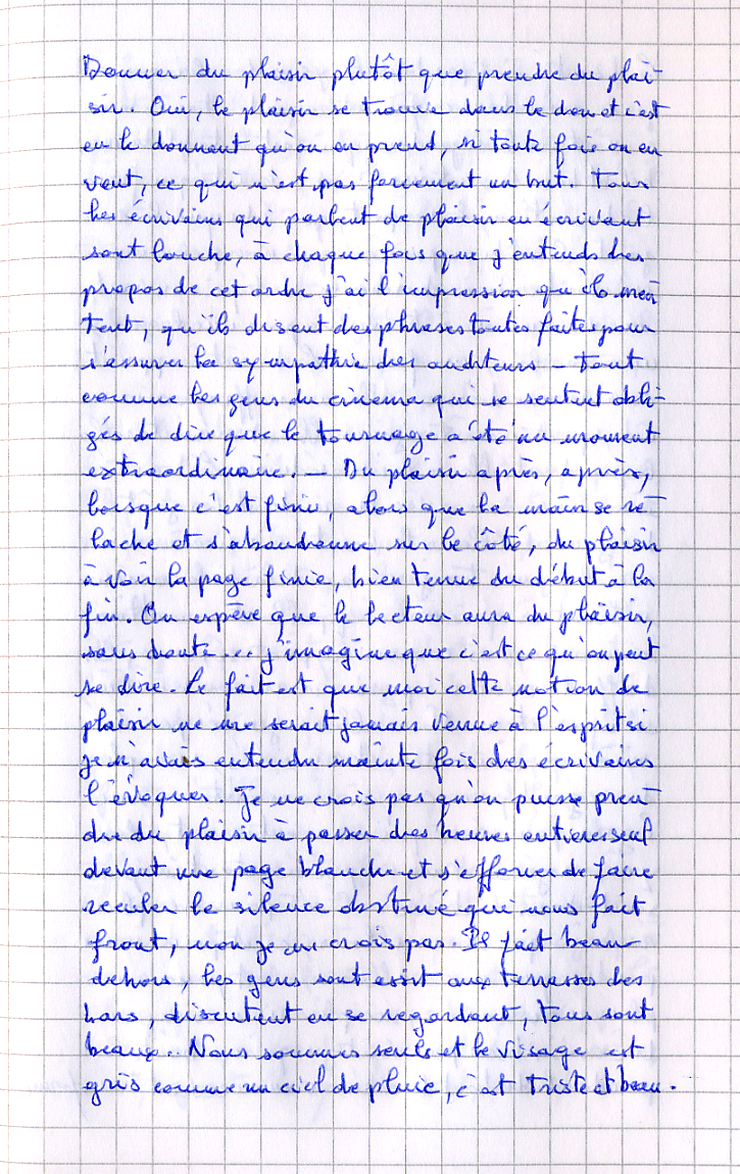 Donner du plaisir plutôt que prendre du plai-
sir. Oui, le plaisir se trouve dans le don et c'est
en le donnant qu'on en prend, si toute fois on en
veut, ce qui n'est pas forcement un but. Tous
les écrivains qui parlent de plaisir en écrivant
sont louche, à chaque fois que j'entends des
propos de cet ordre j'ai l'impression qu'ils men
tent, qu'ils disent des phrases toutes faites pour
s'assurer la sympathie des auditeurs - tout
comme les gens du cinema qui se sentent obli-
gés de dire que le tournage a été un moment
extraordinaire. - Du plaisir après, après,
lorsque c'est fini, alors que la main se re-
lache et s'abandonne sur le côté, du plaisir
à voir la page finie, bien tenue du début à la
fin. On espère que le lecteur aura du plaisir,
sans doute... j'imagine que c'est ce qu'on peut
se dire. Le fait est que moi cette notion de
plaisir ne me serait jamais venue à l'esprit si
je n'avais entendu mainte fois des écrivains
l'évoquer. Je ne crois pas qu'on puisse pren-
dre du plaisir à passer des heures entieres seul
devant une page blanche et s'efforcer de faire
reculer le silence obstiné qui nous fait
front, non je ne crois pas. Il fait beau
dehors, les gens sont assit aux terrasses des
bars, discutent en se regardant, tous sont
beaux.. Nous sommes seuls et le visage est
gris comme un ciel de pluie, c'est triste et beau.